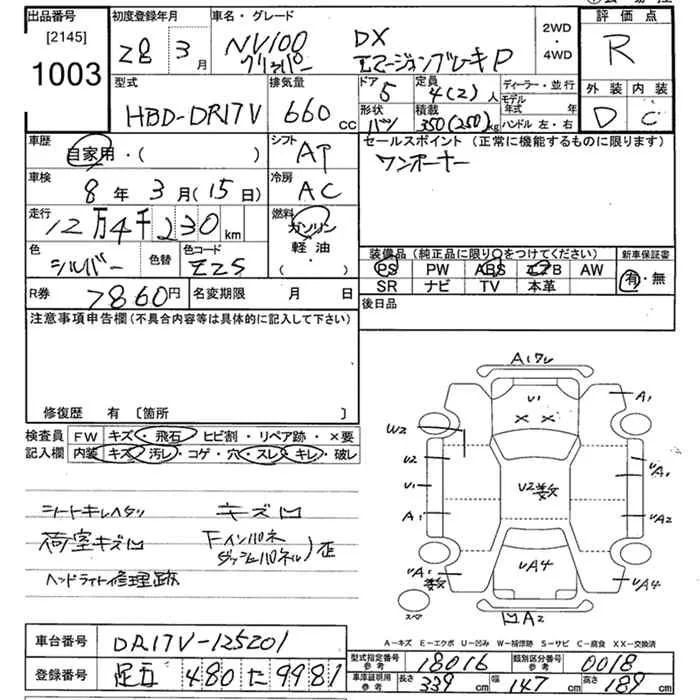 出品番号 初度登録年月 車名・グレード 評価点
[2145] 28 3月 NV100 DX 2WD
1003 クリッパー エマージェンブレーキP ・4WD R
型式 排気量 ドア 定員 ディーラー・並行 外装 内装
HBD-DR17V 660cc 5 4(2)人 モデル年式 年 D C
形状 積載
バン 350(250)kg ハンドル 左・右
車歴 自家用・( ) シフト AT セールスポイント(正常に機能するものに限ります)
車検 8年3月(15日) 冷房 AC ワンオーナー
走行 12万4千230km 燃料 ガソリン
軽油
・( )
色 シルバー 色替 色コード Z2S
装備品(純正品に限り○をつけてください) 新車保証書
PS PW ABS エアB AW 有・無
SR ナビ TV 本革
R券 7860円 名変期限 月 日 後日品
注意事項申告欄(不具合内容等は具体的に記入して下さい)
修復歴 有 〔箇所 〕
検査員 FW キズ・飛石・ヒビ割・リペア跡・×要
記入欄 内装 キズ・汚レ・コゲ・穴・スレ・キレ・破レ
シートキレヘタリ キズ凹
荷室キズ凹 Fインパネ
ダッシュパネル)歪
ヘッドライト修理跡
A1ワレ
U1
A1
× ×
W2
U2
U1
U2数
UA1
A1
UA2
UA1
数
UA4
UA4
スペア
凹A2
A-キズ E-エクボ U-凹み W-補修跡 S-サビ C-腐食 XX-交換済
車台番号 DR17V-125201
型式指定番号 参考 18016 類別区分番号 参考 0018
登録番号 足立 480 た 9981
車庫証明用 参考 長さ 339cm 幅 147cm 高さ 189cm